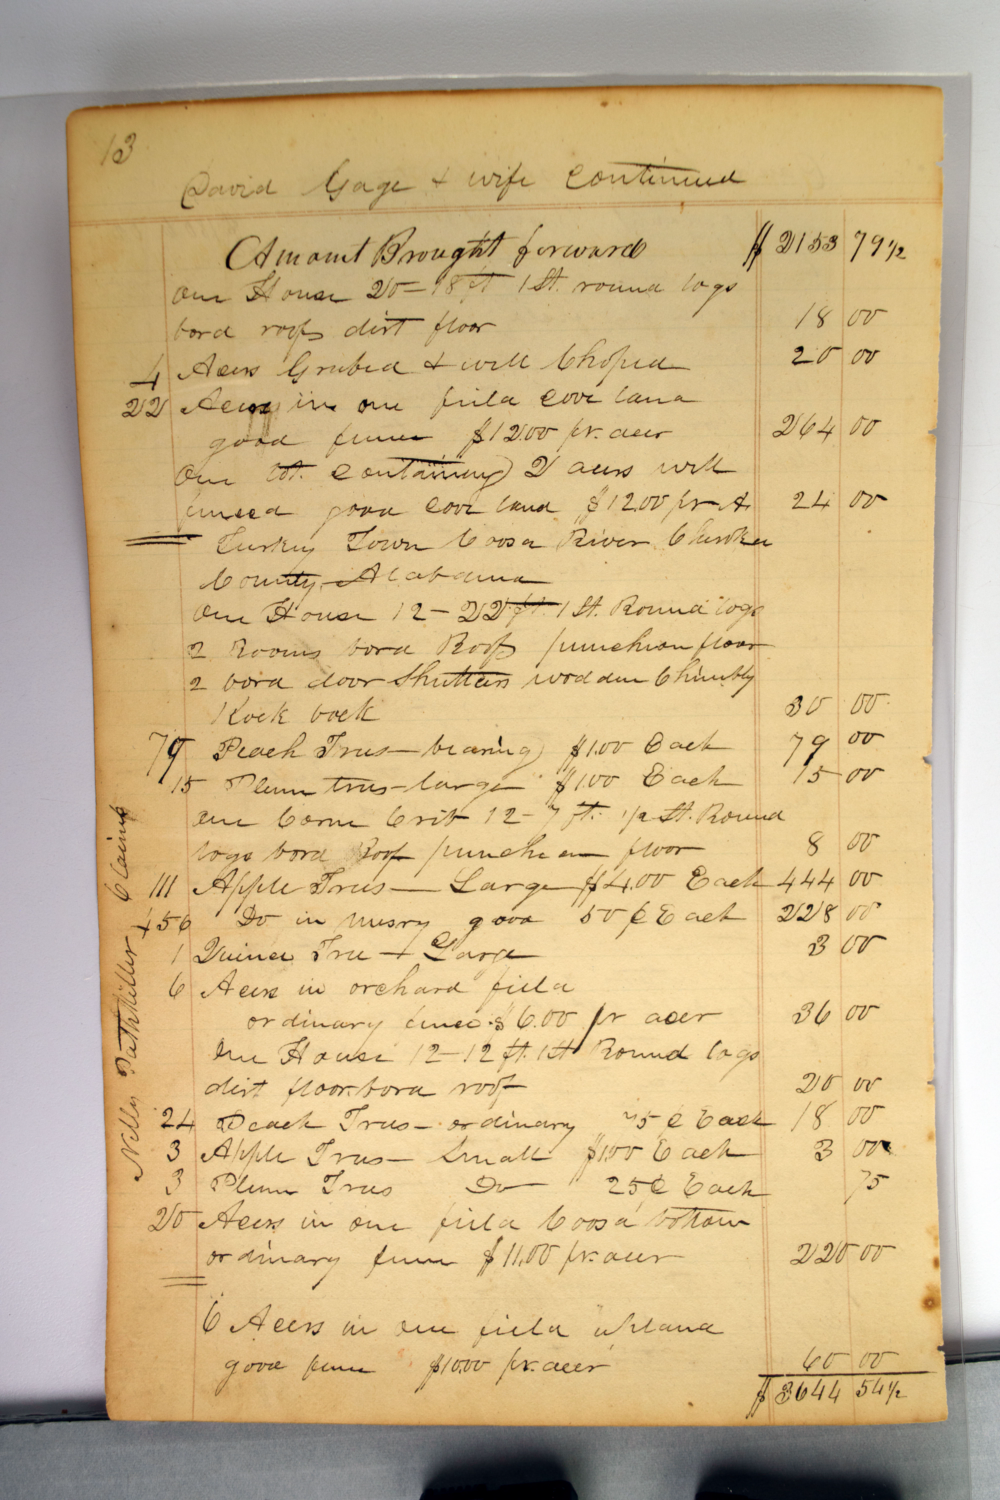 13
David Gage + wife Continued
Amount Brought forward $ 2153 79 1/2
One House 20 - 18 ft 1 St. round logs
bord roof dirt floor 18 00
4 Acers Grubed + well Choped 20 00
22 Acers in one field Cove land
good fence $12.00 pr. acer 264 00
One lot Containing 2 acers well
fenced good Cove land $12.00 pr A 24 00
Turkey Town Coosa River Cherokee
County Alabama
One House 12 - 22 ft. 1 St. Round logs
2 Rooms bord Roof puncheon floor
2 bord door Shutters wooden Chimbly
Rock back 30 00
79 Peach Trees - bearing $1.00 Each 79 00
15 Plum trees - large $1.00 Each 15 00
One Corn Crib 12 - 7 ft. 1/2 St. Round
logs bord Roof puncheon floor 8 00
111 Apple Trees - Large $4.00 Each 444 00
456 Do in nusry good 50 ¢ Each 228 00
1 Quince Tree - Large 3 00
6 Acers in orchard field
ordinary fence $6.00 pr acer 36 00
One House 12 - 12 ft. 1 St Round logs
dirt floor bord roof 20 00
24 Peach Trees - ordinary 75 ¢ Each 18 00
3 Apple Trees - Small $1.00 Each 3 00
3 Plum Trees Do 25 ¢ Each 75
20 Acers in one field Coosa bottom
ordinary fence $11.00 pr. acer 220 00
6 Acers in one field upland
good fence $10.00 pr. acer 60 00
$ 3644 54 1/2
Nelly Pathkiller Claims